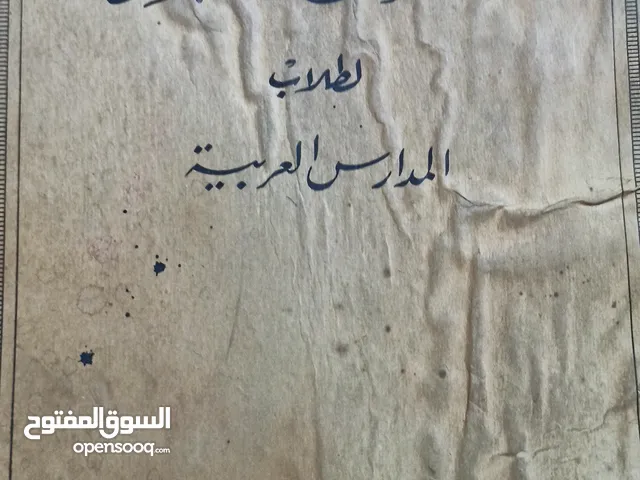 لطلاب
المدارس العربية
السوق المفتوح
opensooq.com